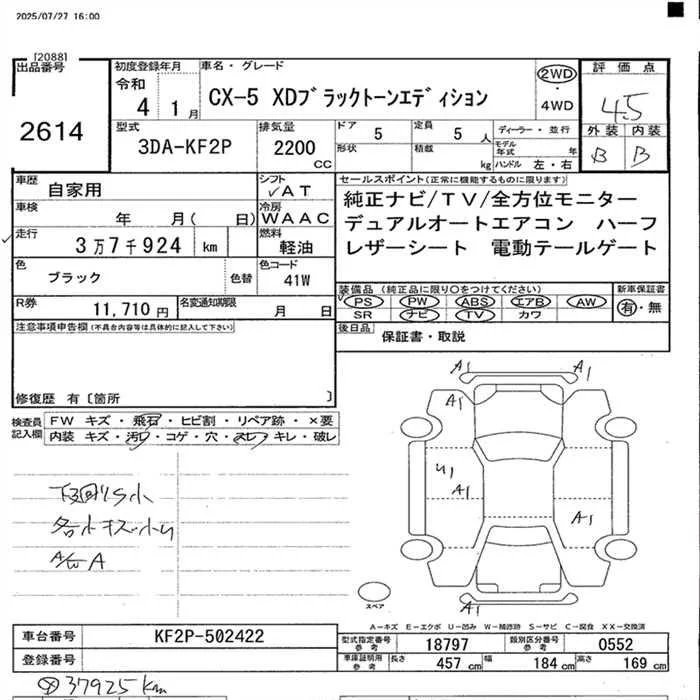 2025/07/27 16:00
[2088]
出品番号
2614
初度登録年月
令和
4 1月
車名・グレード
CX-5 XDブラックトーンエディション
2WD
・
4WD
評価点
4.5
外装 内装
B B
型式
3DA-KF2P
排気量
2200
CC
ドア
5
定員
5人
形状
積載
kg
ディーラー・並行
モデル年式 年
ハンドル 左・右
車歴
自家用
シフト
✓AT
車検
年 月( 日)
冷房
WAAC
走行
3万7千924 km
燃料
軽油
色
ブラック
色替
色コード
41W
R券
11,710円
名変通知期限
月 日
セールスポイント(正常に機能するものに限ります)
純正ナビ/TV/全方位モニター
デュアルオートエアコン ハーフ
レザーシート 電動テールゲート
装備品(純正品に限り○をつけてください)
PS PW ABS エアB AW
SR ナビ TV カワ
新車保証書
有・無
後日品
保証書・取説
注意事項申告欄(不具合内容等は具体的に記入して下さい)
修復歴 有〔箇所 〕
検査員
記入欄
FW キズ・飛石・ヒビ割・リペア跡・×要
内装 キズ・汚れ・コゲ・穴・スレ・キレ・破レ
下回りS小
各小キズ小U
A1
A1
A1
U1
A1
A1
A1
スペア
A-キズ E-エクボ U-凹み W-補修跡 S-サビ C-腐食 XX-交換済
車台番号
KF2P-502422
登録番号
型式指定番号
参考
18797
類別区分番号
参考
0552
車庫証明用
参考
長さ
457 cm
幅
184 cm
高さ
169 cm
37925 km